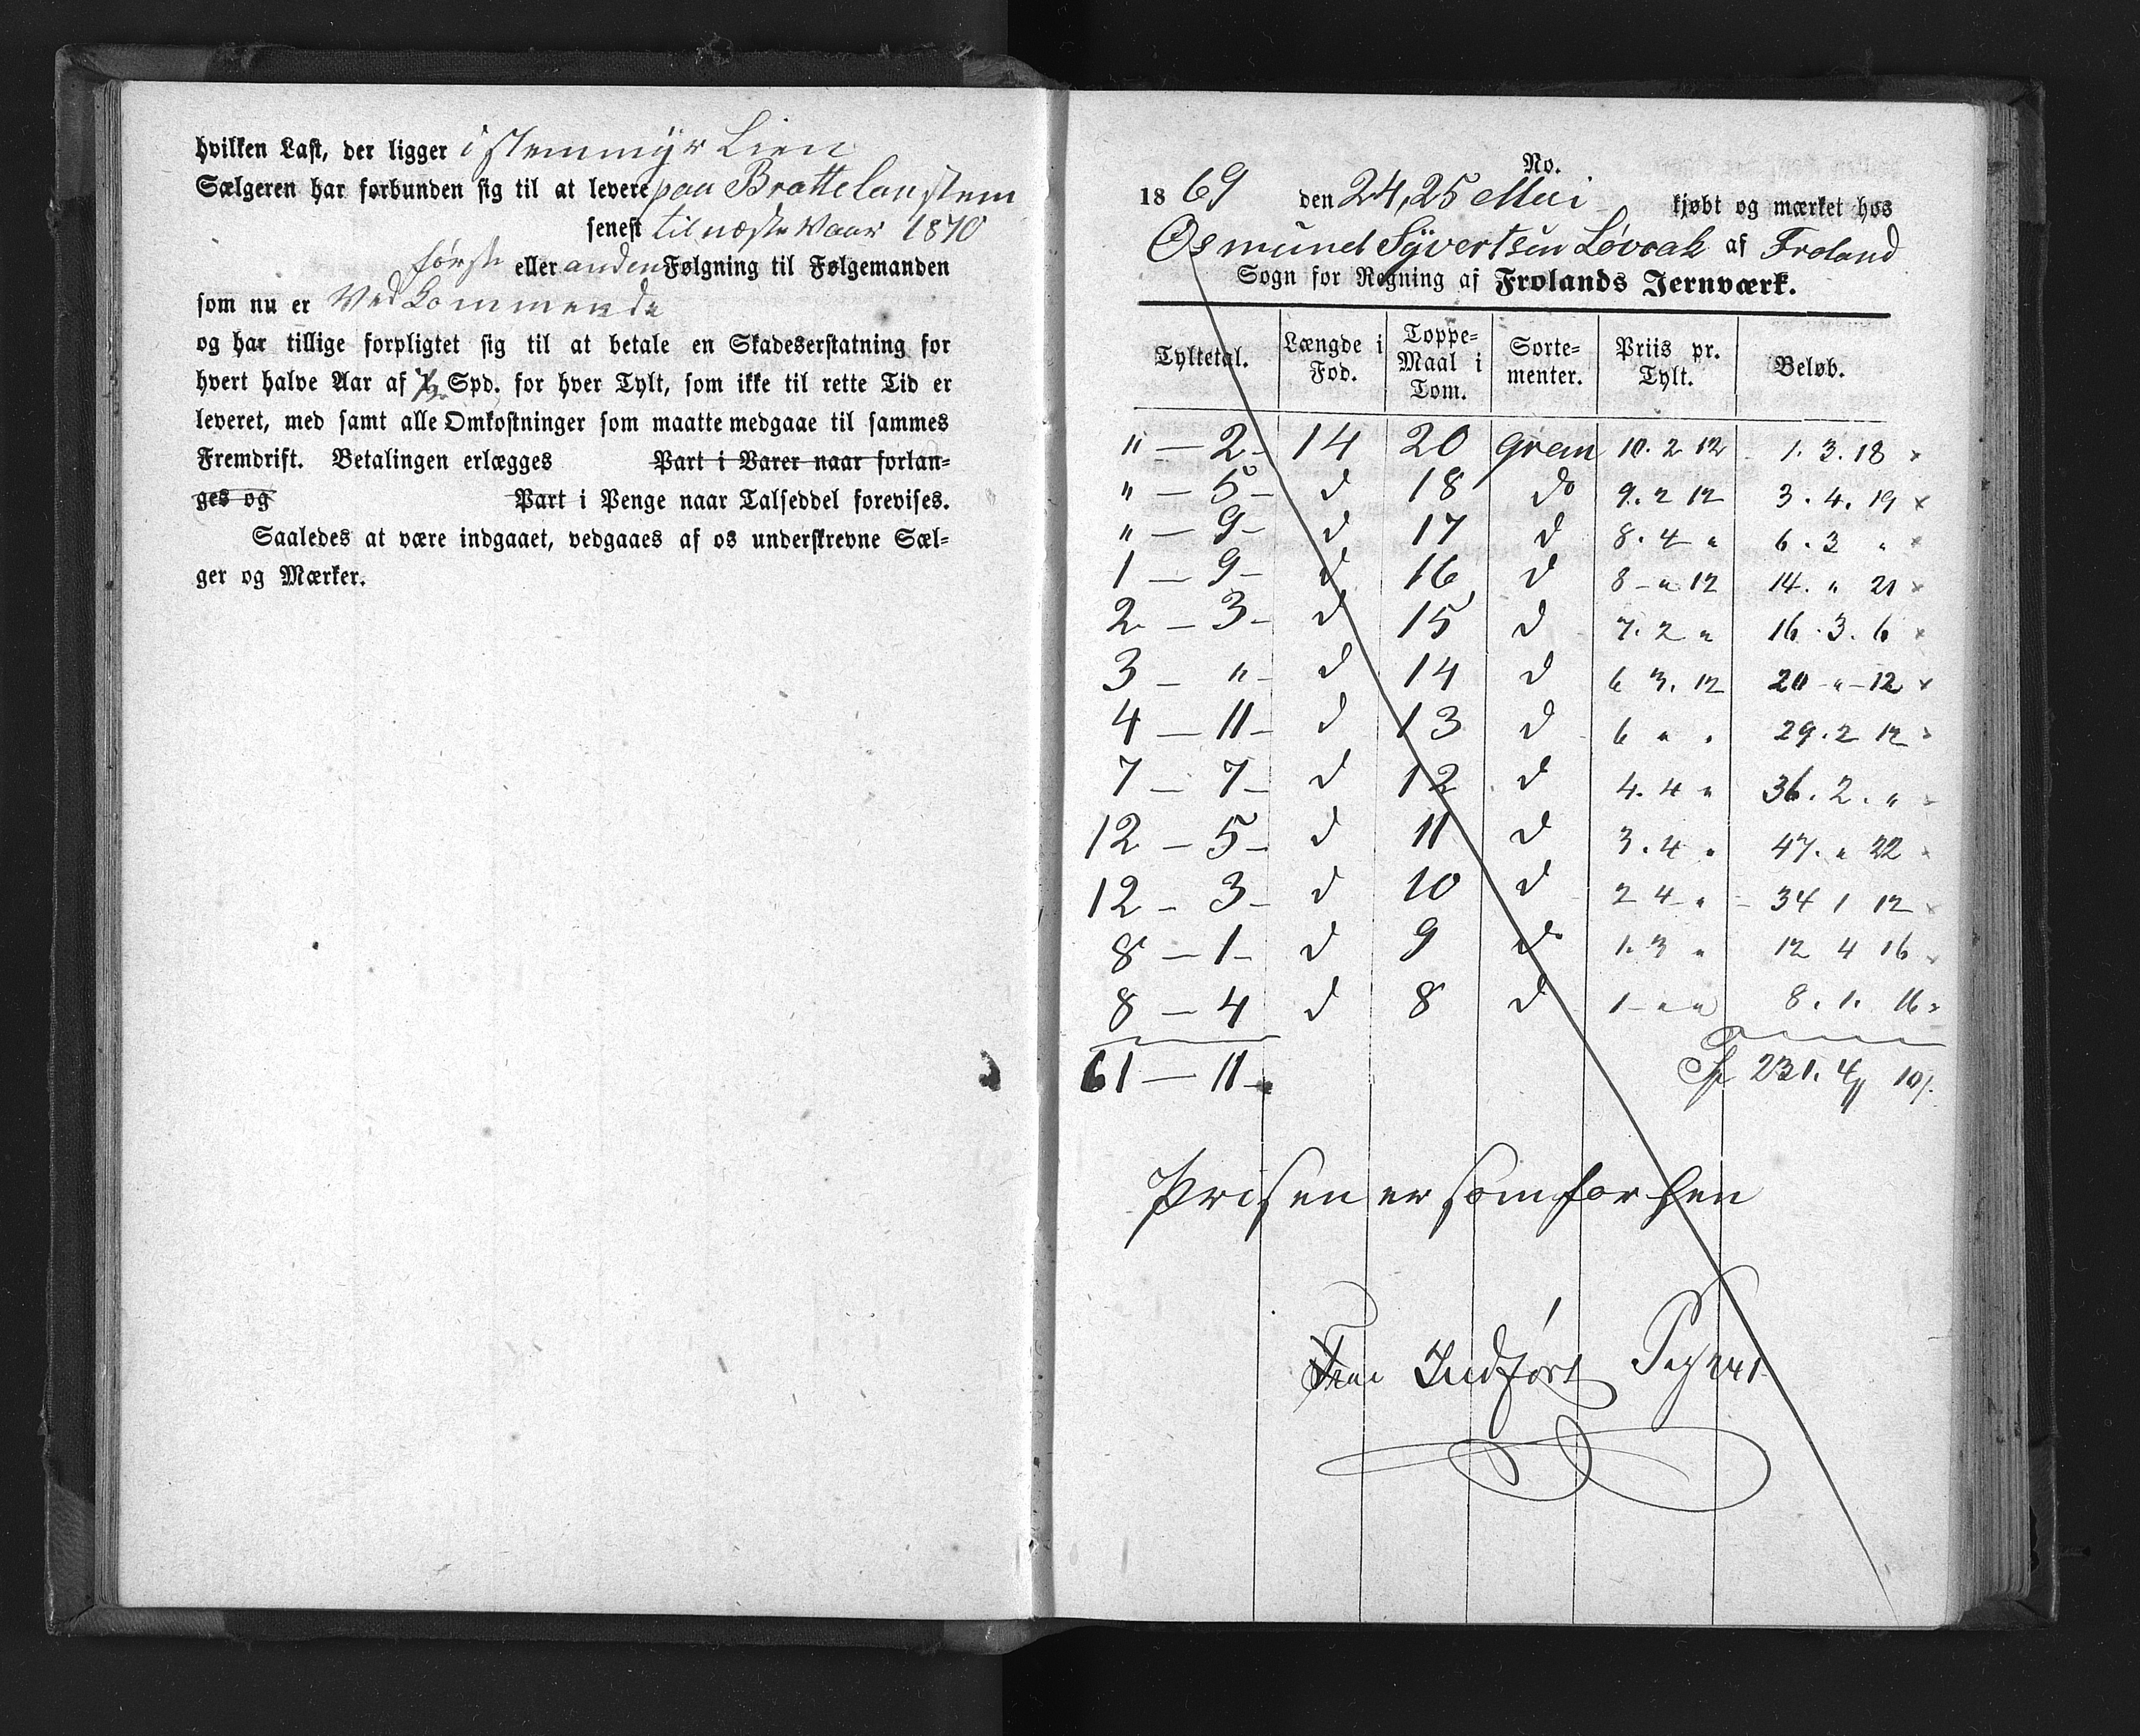 hvilken Last, der ligger i Stemmÿr Lien
Sælgeren har forbunden sig til at levere paa Brattelanstem
senest til næste Vaar 1870
første eller anden Følgning til Følgemanden
som nu er Ved Kommende
og har tillige forpligtet sig til at betale en Skadeserstatning for
hvert halve Aar af ½ Spd. for hver Tylt, som ikke til rette Tid er
leveret, med samt alle Omkostninger som maatte medgaae til sammes
Fremdrift. Betalingen erlægges Part i Varer naar forlan-
ges og Part i Penge naar Talseddel forevises.
Saaledes at være indgaaet, vedgaaes af os underskrevne Sæl-
ger og Mærker.
No.
1869 den 24, 25 Mai kjøbt og mærket hos
Osmund Sÿvertsen Løvrak af Froland
Sogn for Regning af Frolands Jernværk.
Tyltetal. Længde i Fod. Toppe-Maal i Tom. Sorte-menter. Priis pr. Tylt. Beløb.
" — 2 - 14 20 gran 10. 2 12 1. 3. 18 ×
" — 5 - d 18 do 9. 2 12 3. 4. 19 ×
" — 9 - d 17 d 8. 4 " 6. 3 " ×
1 — 9 - d 16 d 8 - " 12 14. " 21 ×
2 — 3 - d 15 d 7. 2 " 16. 3. 6 ×
3 — " - d 14 d 6 3. 12 20 - " - 12 ×
4 — 11 - d 13 d 6 " " 29. 2 12 ×
7 — 7 - d 12 d 4. 4 " 36. 2. " ×
12 — 5 - d 11 d 3. 4 " 47. " 22 ×
12 — 3 - d 10 d 2 4 " 34 1 12 ×
8 — 1 - d 9 do 1. 3 " 12 4 16 ×
8 — 4 d 8 d 1 - " " 8. 1. 16 ×
61 — 11 - Sp 231. 4 10
Prisen er som forhen
Indført Pag 241